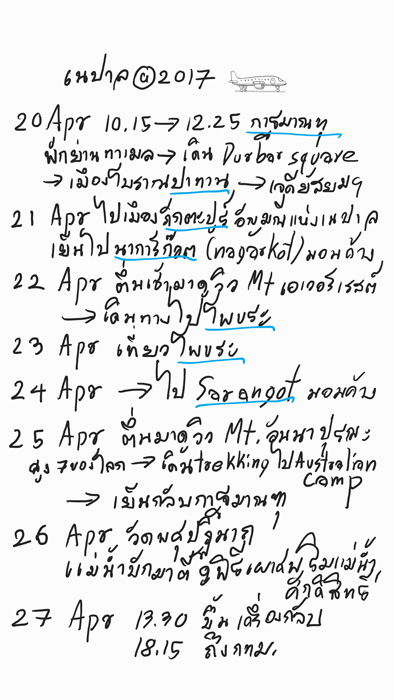 เนปาล @ 2017
20 Apr 10.15 → 12.25 กาฐมาณฑุ
พักย่านทาเมล → เดิน Durbar square
→ เมืองโบราณปาทาน, → เจดีย์สยมฯ
21 Apr ไปเมืองภักตะปูร์ อัญมณีแห่งเนปาล
เย็นไปนาการ์ก๊อต (nagarkot) นอนค้าง
22 Apr ตื่นเช้ามาดูวิว Mt เอเวอร์เรสต์
→ เดินทางไปโพขระ
23 Apr เที่ยวโพขระ
24 Apr → ไป Sarangot นอนค้าง
25 Apr ตื่นมาดูวิว Mt. อันนาปุรณะ
สูง 7 ของโลก → เดิน trekking ไป Australian
camp
→ เย็นกลับกาฐมาณฑุ
26 Apr วัดพศุปฏินาถ
แม่น้ำบักมาตี ดูพิธีเผาศพริมแม่น้ำ
ศักดิ์สิทธิ์
27 Apr 13.30 ขึ้นเครื่องกลับ
18.15 ถึงกทม.